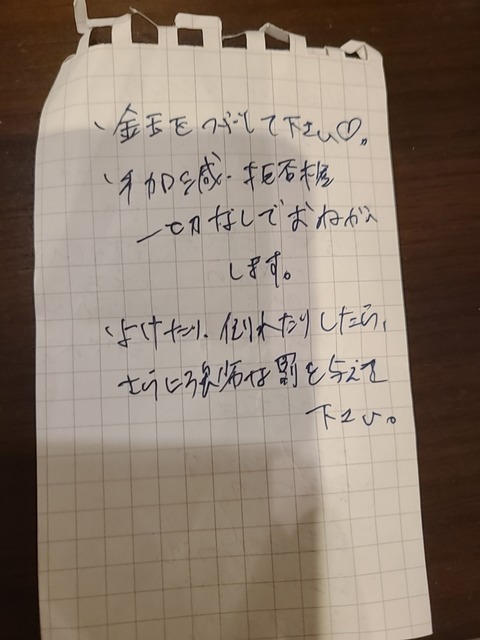 ・金玉をつぶして下さい♡。
・手加減・拒否権
一切なしでおねがい
します。
・よけたり、倒れたりしたら、
さらに強烈な罰を与えて
下さい。